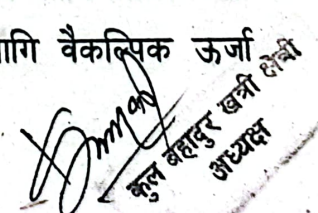 ागि वैकल्पिक ऊर्जा
कुल बहादुर खत्री क्षेत्री
अध्यक्ष